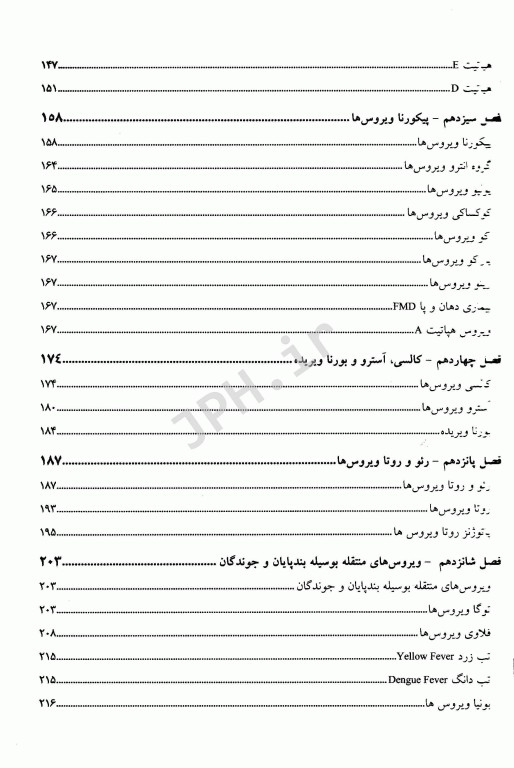 هپاتیت E ........ ۱۴۷
هپاتیت D ........ ۱۵۱
فصل سیزدهم - پیکورنا ویروس‌ها ........ ۱۵۸
پیکورنا ویروس‌ها ........ ۱۵۸
گروه انترو ویروس‌ها ........ ۱۶۴
پولیو ویروس‌ها ........ ۱۶۵
کوکساکی ویروس‌ها ........ ۱۶۶
اکو ویروس‌ها ........ ۱۶۶
پاراکو ویروس‌ها ........ ۱۶۷
رینو ویروس‌ها ........ ۱۶۷
بیماری دهان و پا FMD ........ ۱۶۷
ویروس هپاتیت A ........ ۱۶۷
فصل چهاردهم - کالسی، آسترو و بورنا ویریده ........ ۱۷۴
کالسی ویروس‌ها ........ ۱۷۴
آسترو ویروس‌ها ........ ۱۸۰
بورنا ویریده ........ ۱۸۴
فصل پانزدهم - رئو و روتا ویروس‌ها ........ ۱۸۷
رئو و روتا ویروس‌ها ........ ۱۸۷
روتا ویروس‌ها ........ ۱۹۳
پاتوژنز روتا ویروس ها ........ ۱۹۵
فصل شانزدهم - ویروس‌های منتقله بوسیله بندپایان و جوندگان ........ ۲۰۳
ویروس‌های منتقله بوسیله بندپایان و جوندگان ........ ۲۰۳
توگا ویروس‌ها ........ ۲۰۳
فلاوی ویروس‌ها ........ ۲۰۸
تب زرد Yellow Fever ........ ۲۱۵
تب دانگ Dengue Fever ........ ۲۱۵
بونیا ویروس ها ........ ۲۱۶
JPH.ir